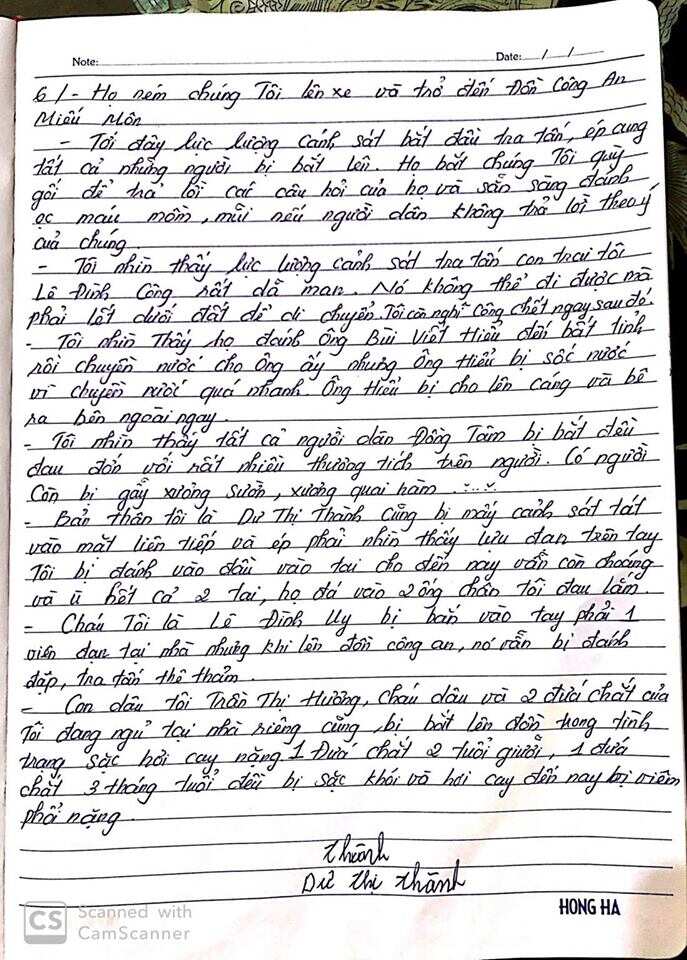 Note: Date: / /
6/- Họ ném chúng Tôi lên xe và trở đến Đồn Công An
Miếu Môn
- Tới đây lực lượng cảnh sát bắt đầu tra tấn, ép cung
tất cả những người bị bắt lên. Họ bắt chúng Tôi quỳ
gối để trả lời các câu hỏi của họ và sẵn sàng đánh
ọc máu mồm, mũi nếu người dân không trả lời theo ý
của chúng.
- Tôi nhìn thấy lực lượng cảnh sát tra tấn con trai tôi
Lê Đình Công rất dã man. Nó không thể đi được mà
phải lết dưới đất để di chuyển. Tôi còn nghĩ Công chết ngay sau đó.
- Tôi nhìn Thấy họ đánh Ông Bùi Viết Hiểu đến bất tỉnh
rồi chuyền nước cho Ông ấy nhưng Ông Hiểu bị sốc nước
vì chuyền nước quá nhanh. Ông Hiểu bị cho lên cáng và bê
ra bên ngoài ngay.
- Tôi nhìn thấy tất cả người dân Đồng Tâm bị bắt đều
đau đớn với rất nhiều thương tích trên người. Có người
Còn bị gẫy xương sườn, xương quai hàm ......
- Bản thân tôi là Dư Thị Thành cũng bị mấy cảnh sát tát
vào mặt liên tiếp và ép phải nhìn thấy lựu đạn trên tay
Tôi bị đánh vào đầu vào tai cho đến nay vẫn còn choáng
và ù hết cả 2 tai, họ đá vào 2 ống chân tôi đau lắm.
- Cháu Tôi là Lê Đình Uy bị bắn vào tay phải 1
viên đạn tại nhà nhưng khi lên đồn công an, nó vẫn bị đánh
đập, tra tấn thê thảm.
- Con dâu tôi Trần Thị Hương, cháu dâu và 2 đứa chắt của
Tôi đang ngủ tại nhà riêng cũng bị bắt lên đồn trong tình
trạng sặc hơi cay nặng 1 Đứa chắt 2 tuổi giưỡi, 1 đứa
chắt 3 tháng tuổi đều bị sặc khói và hơi cay đến nay bị viêm
phổi nặng.
Thành
Dư Thị Thành
HONG HA
CS Scanned with
CamScanner